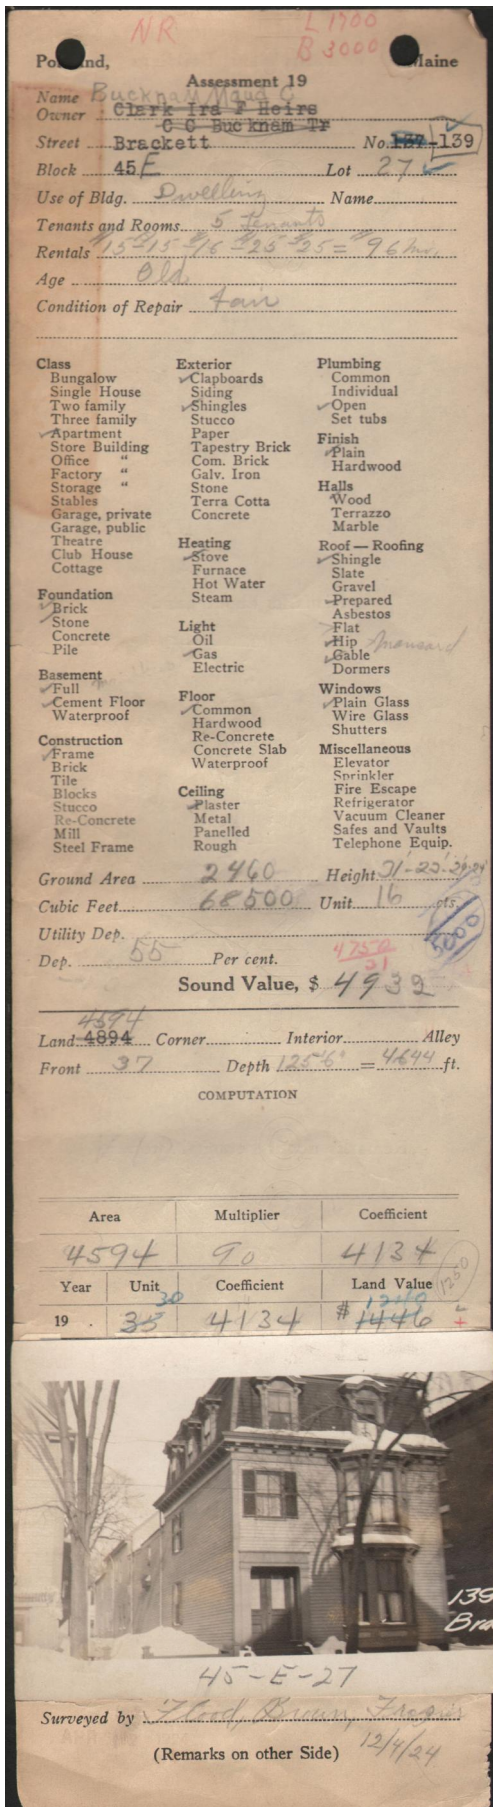 NR
L 1700
B 3000
Portland, Maine
Assessment 19
Name Bucknam Maud C
Owner Clark Ira F Heirs
C C Bucknam Tr
Street Brackett No. 137-139
Block 45 E Lot 27
Use of Bldg. Dwelling Name
Tenants and Rooms 5 Tenants
Rentals $15-$15-$16-$25-$25=$96 mo.
Age Old
Condition of Repair Fair
Class
Bungalow
Single House
Two family
Three family
Apartment
Store Building
Office "
Factory "
Storage "
Stables
Garage, private
Garage, public
Theatre
Club House
Cottage
Foundation
Brick
Stone
Concrete
Pile
Basement
Full
Cement Floor
Waterproof
Construction
Frame
Brick
Tile
Blocks
Stucco
Re-Concrete
Mill
Steel Frame
Exterior
Clapboards
Siding
Shingles
Stucco
Paper
Tapestry Brick
Com. Brick
Galv. Iron
Stone
Terra Cotta
Concrete
Heating
Stove
Furnace
Hot Water
Steam
Light
Oil
Gas
Electric
Floor
Common
Hardwood
Re-Concrete
Concrete Slab
Waterproof
Ceiling
Plaster
Metal
Panelled
Rough
Plumbing
Common
Individual
Open
Set tubs
Finish
Plain
Hardwood
Halls
Wood
Terrazzo
Marble
Roof — Roofing
Shingle
Slate
Gravel
Prepared
Asbestos
Flat
Hip mansard
Gable
Dormers
Windows
Plain Glass
Wire Glass
Shutters
Miscellaneous
Elevator
Sprinkler
Fire Escape
Refrigerator
Vacuum Cleaner
Safes and Vaults
Telephone Equip.
Ground Area 2460 Height
Cubic Feet 68500 Unit 16 cts.
Utility Dep. 5000
Dep. 55 Per cent. 4750
31
Sound Value, $ 4932
4594
Land 4894 Corner Interior Alley
Front 37 Depth 125'6" = 4644 ft.
COMPUTATION
Area Multiplier Coefficient
4594 90 4134
Year Unit Coefficient Land Value
1250
30 1240
19 . 35 4134 $ 1446
139
Bra
45-E-27
Surveyed by Flood, Brown, Frazier
12/4/24
(Remarks on other Side)